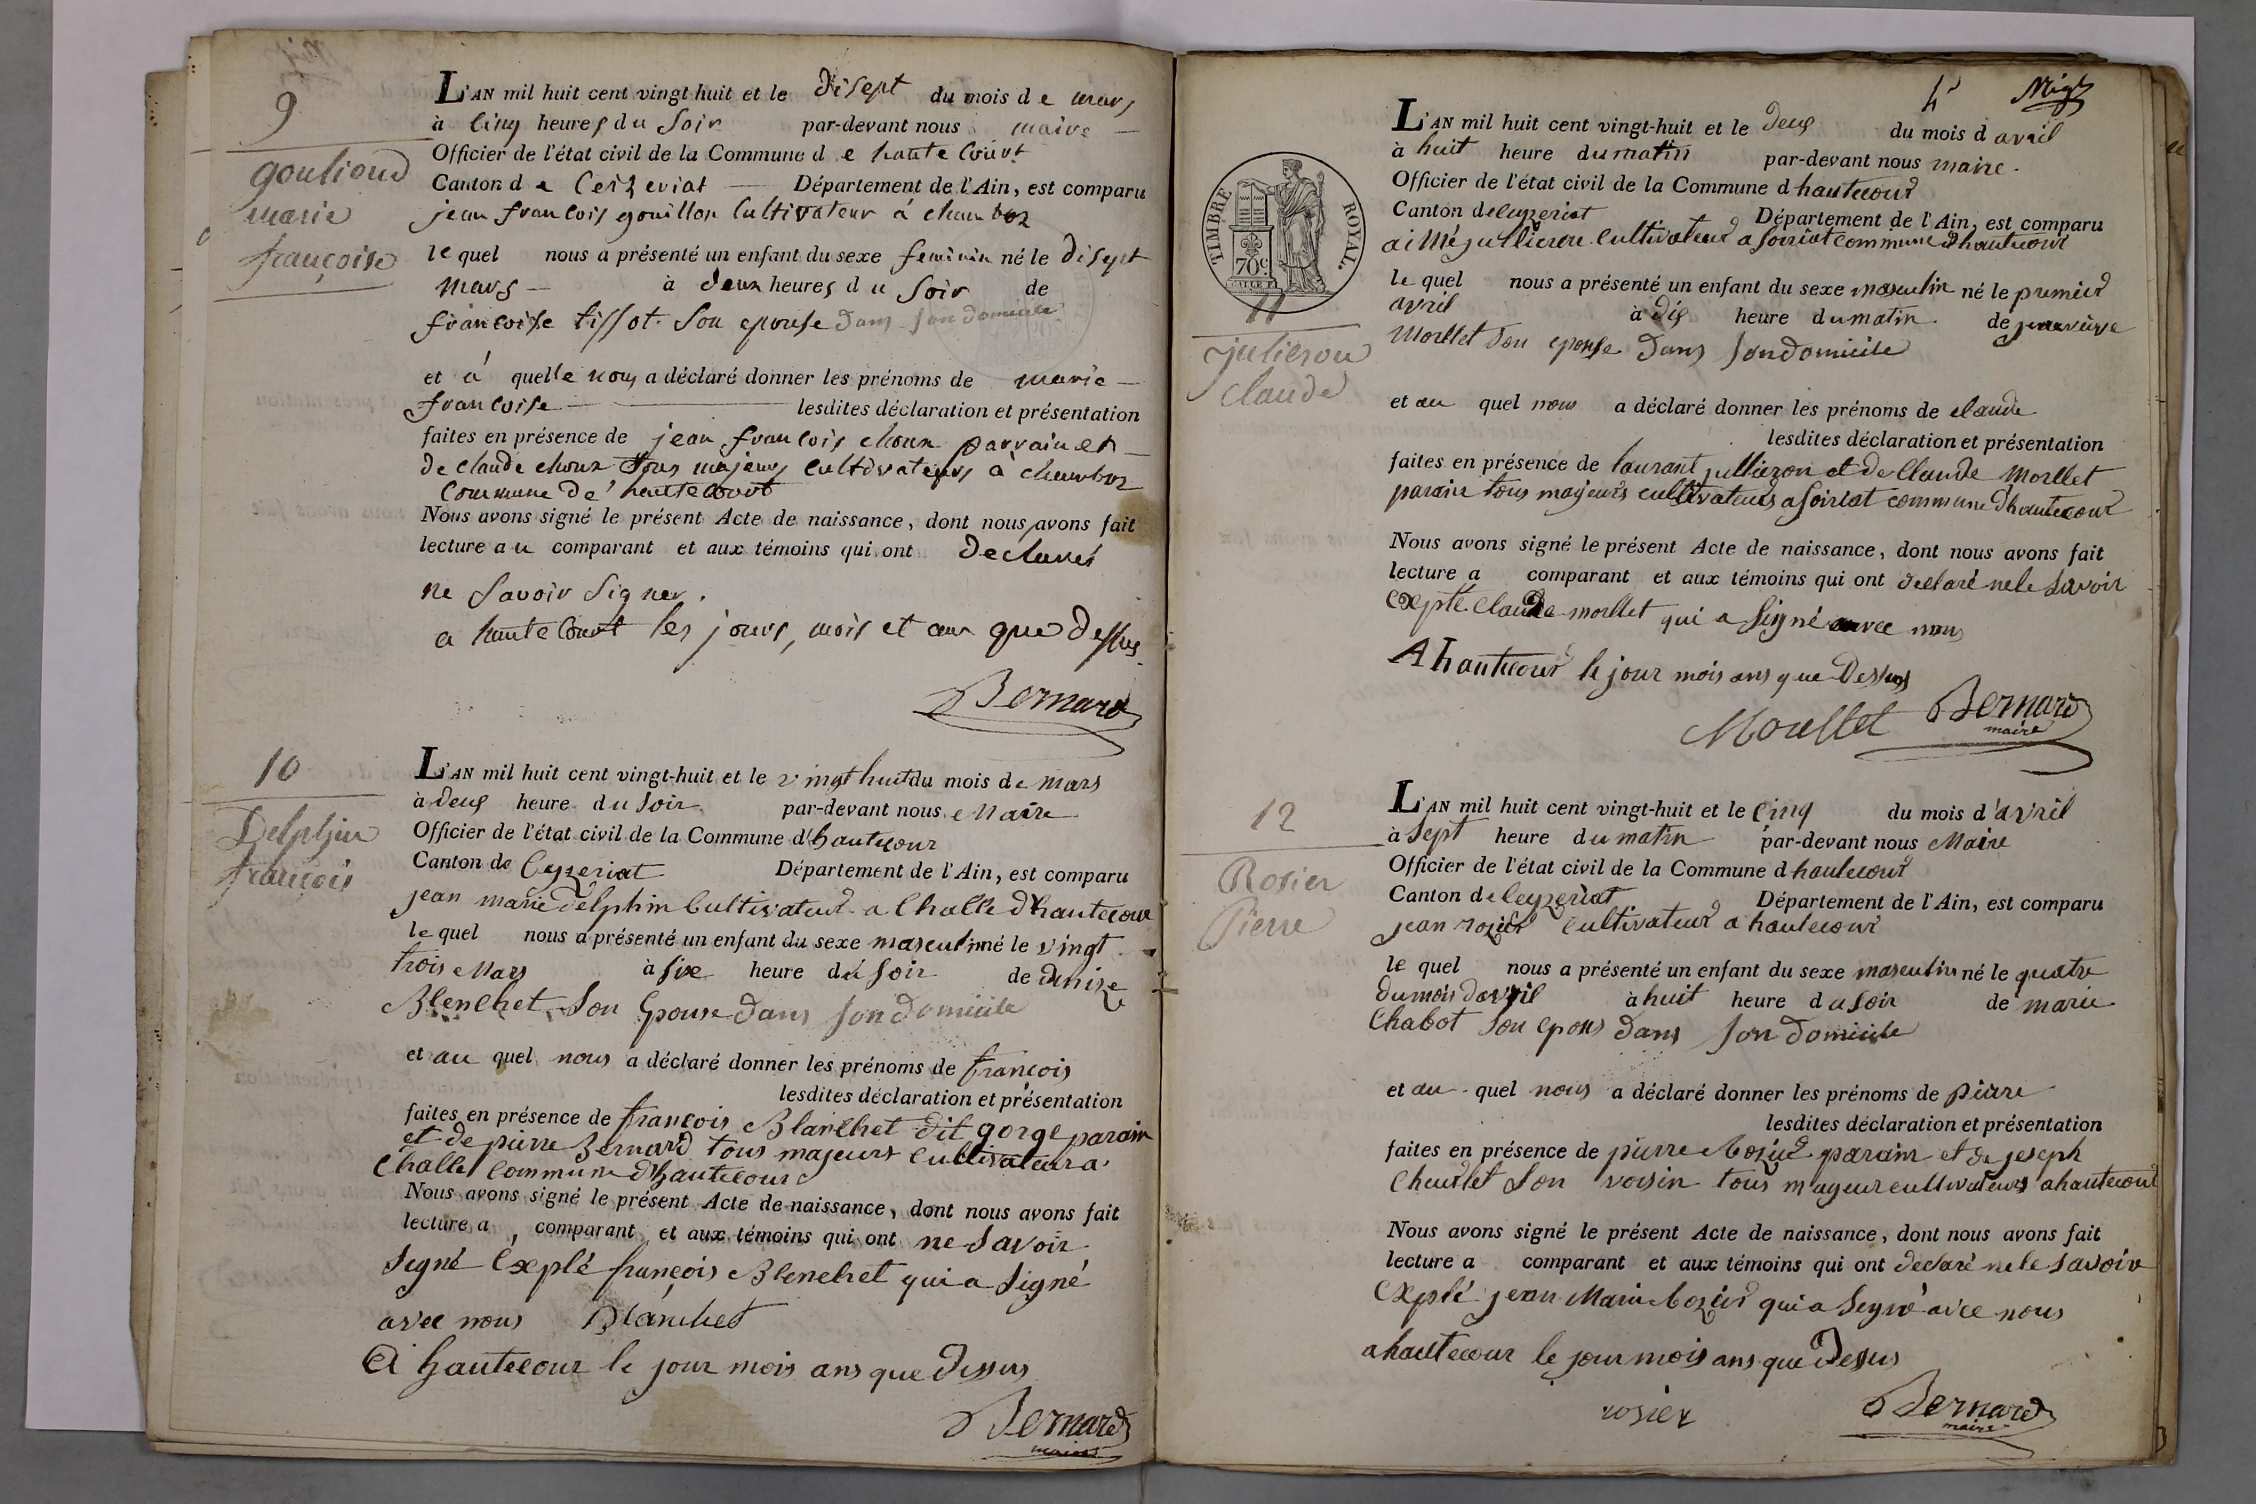 9
goulioud
marie
françoise
L'AN mil huit cent vingt huit et le disept du mois de mars
à cinq heures du soir par-devant nous maire
Officier de l'état civil de la Commune de haute Court
Canton de Ceizeriat Département de l'Ain, est comparu
jean francois gouillon Cultivateur à chamboz
le quel nous a présenté un enfant du sexe feminin né le disept
mars à deux heures du soir de
francoise tissot son epouse dans son domicile
et à quelle nous a déclaré donner les prénoms de marie
francoise lesdites déclaration et présentation
faites en présence de jean francois choux parrain et
de claude choux tous majeurs cultivateurs à chamboz
commune de hautecourt
Nous avons signé le présent Acte de naissance, dont nous avons fait
lecture au comparant et aux témoins qui ont declarés
ne savoir signer.
a haute Court les jours, mois et an que dessus
Bernard
10
Delphin
françois
L'AN mil huit cent vingt-huit et le vingt huit du mois de mars
à deus heure du soir par-devant nous Maire
Officier de l'état civil de la Commune d'hautecour
Canton de Ceyzeriat Département de l'Ain, est comparu
jean marie delphin Cultivateur a Challe d'hautecour
le quel nous a présenté un enfant du sexe masculin né le vingt
trois Mars à sixe heure du soir de denize
Blenchet son Epouse dans son domicile
et au quel nous a déclaré donner les prénoms de françois
lesdites déclaration et présentation
faites en présence de françois Blanchet dit gorge parain
et de pierre Bernard tous majeurs cultivateur a
Challe Commune d'hautecour
Nous avons signé le présent Acte de naissance, dont nous avons fait
lecture a comparant et aux témoins qui ont ne savoir
signé Explé françois Blenchet qui a signé
avec nous Blanchet
A hautecour le jour mois ans que dessus
Bernard
maire
4e
TIMBRE ROYAL.
70c
11
julieron
claude
L'AN mil huit cent vingt-huit et le deus du mois d avril
à huit heure du matin par-devant nous maire.
Officier de l'état civil de la Commune d hautecour
Canton de ceyzeriat Département de l'Ain, est comparu
aimé jullieron cultivateur a soiriat commune d'hautecour
le quel nous a présenté un enfant du sexe masculin né le premier
avril à dis heure du matin de
Morllet son epouse dans son domicile
et au quel nous a déclaré donner les prénoms de claude
lesdites déclaration et présentation
faites en présence de laurant jullieron et de Claude Morllet
parain tous majeurs cultivateurs a soiriat commune d'hautecour
Nous avons signé le présent Acte de naissance, dont nous avons fait
lecture a comparant et aux témoins qui ont declaré ne le savoir
Expté Claude morllet qui a signé avec nous
A hautecour le jour mois ans que Dessus
Morellet Bernard
maire
12
Rosier
Pierre
L'AN mil huit cent vingt-huit et le Cinq du mois d'avril
à sept heure du matin par-devant nous Maire
Officier de l'état civil de la Commune d hautecour
Canton de ceyzeriat Département de l'Ain, est comparu
jean rozier cultivateur a hautecour
le quel nous a présenté un enfant du sexe masculin né le quatre
du mois davril à huit heure du soir de marie
Chabot son epous dans son domicile
et au quel nous a déclaré donner les prénoms de piarre
lesdites déclaration et présentation
faites en présence de pierre Rozier parain et de joseph
son voisin tous mageur cultivateurs a hautecour
Nous avons signé le présent Acte de naissance, dont nous avons fait
lecture a comparant et aux témoins qui ont declaré ne le savoir
Expté jean Marie Rozier qui a Segné avec nous
a hautecour le jour mois ans que Dessus
rosier Bernard
maire